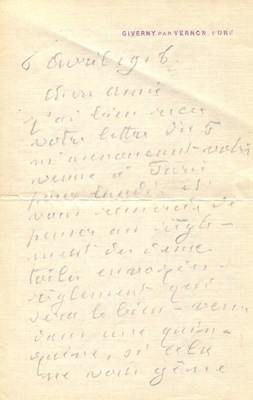 GIVERNY PAR VERNON, EURE
6 Avril
cher ami
j'ai bien reçu
votre lettre du 5
m'annonçant votre
venue à Paris
pour lundi et
vous remercie de
penser au règle-
ment des
toiles envoyées
règlement qui
sera le bien-venu
dans une quin-
zaine, si cela
ne vous gêne